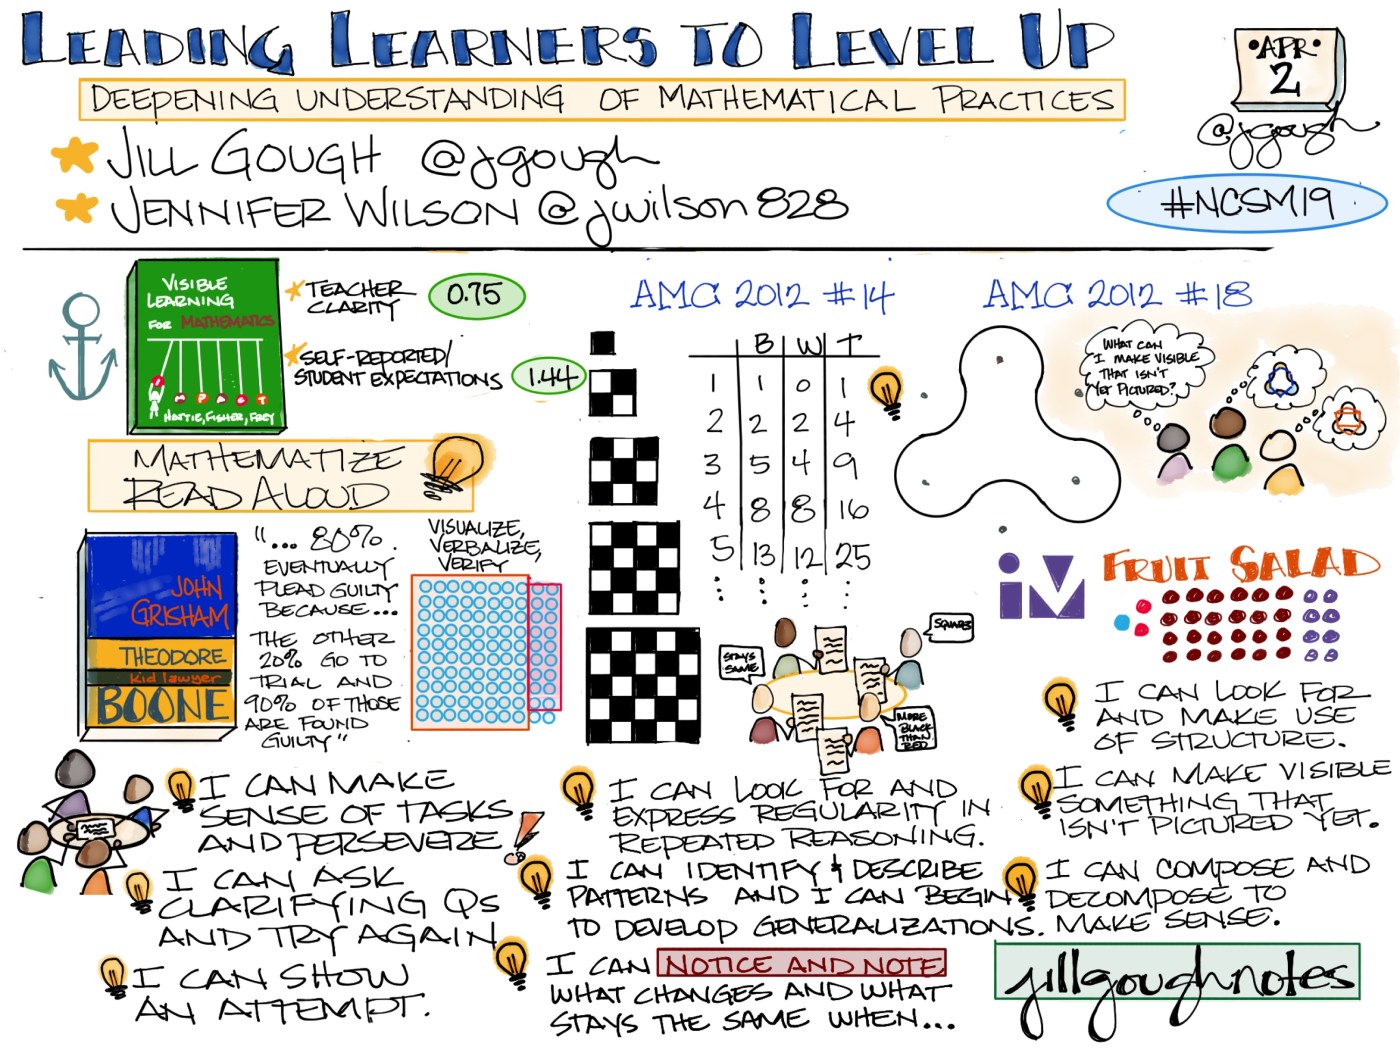 LEADING LEARNERS TO LEVEL UP
DEEPENING UNDERSTANDING OF MATHEMATICAL PRACTICES
JILL GOUGH @jgough
JENNIFER WILSON @jwilson828
•APR•
2
@jgough
#NCSM19
VISIBLE
LEARNING
FOR MATHEMATICS
I M P A C T
HATTIE, FISHER, FREY
TEACHER
CLARITY
0.75
SELF-REPORTED/
STUDENT EXPECTATIONS
1.44
MATHEMATIZE
READ ALOUD
JOHN
GRISHAM
THEODORE
kid lawyer
BOONE
"... 80%
EVENTUALLY
PLEAD GUILTY
BECAUSE...
THE OTHER
20% GO TO
TRIAL AND
90% OF THOSE
ARE FOUND
GUILTY"
VISUALIZE,
VERBALIZE,
VERIFY
I CAN MAKE
SENSE OF TASKS
AND PERSEVERE
I CAN ASK
CLARIFYING QS
AND TRY AGAIN
I CAN SHOW
AN ATTEMPT.
AMC 2012 #14
B W T
1 1 0 1
2 2 2 4
3 5 4 9
4 8 8 16
5 13 12 25
STAYS
SAME
SQUARES
MORE
BLACK
THAN
RED
I CAN LOOK FOR AND
EXPRESS REGULARITY IN
REPEATED REASONING.
I CAN IDENTIFY & DESCRIBE
PATTERNS AND I CAN BEGIN
TO DEVELOP GENERALIZATIONS.
I CAN NOTICE AND NOTE
WHAT CHANGES AND WHAT
STAYS THE SAME WHEN...
AMC 2012 #18
WHAT CAN
I MAKE VISIBLE
THAT ISN'T
YET PICTURED?
iM
FRUIT SALAD
I CAN LOOK FOR
AND MAKE USE
OF STRUCTURE.
I CAN MAKE VISIBLE
SOMETHING THAT
ISN'T PICTURED YET.
I CAN COMPOSE AND
DECOMPOSE TO
MAKE SENSE.
jillgoughnotes